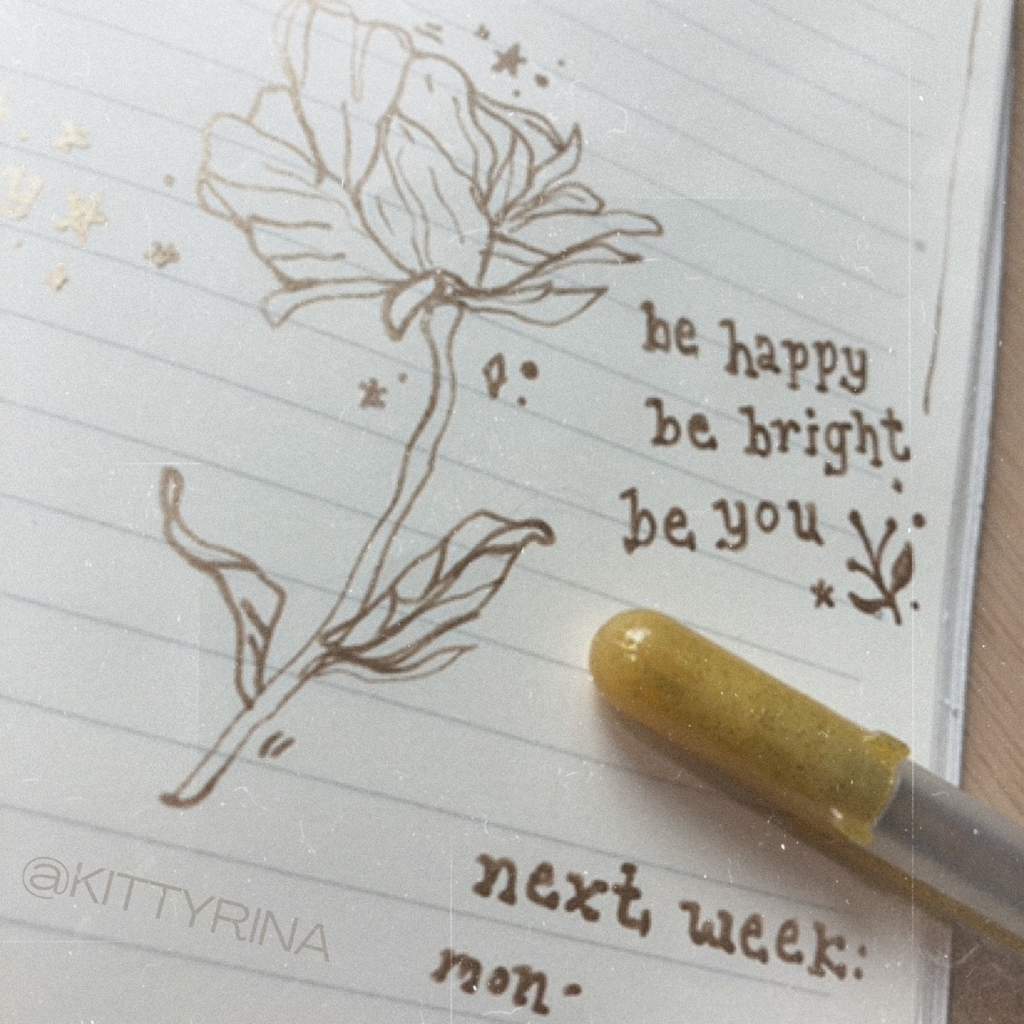 be happy
be bright
be you
next week:
mon.
@KITTYRINA